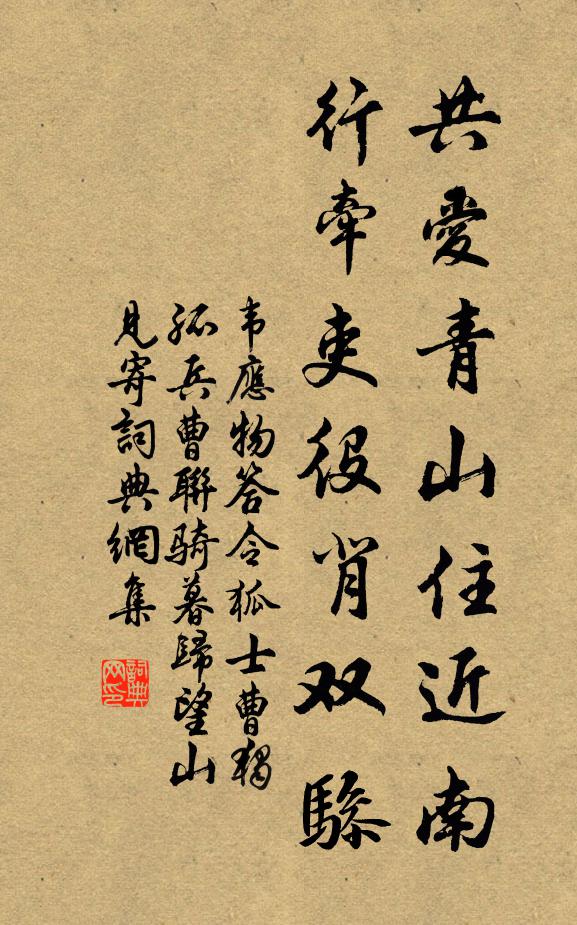 共愛青山住近南
行牽吏役背双驂
韦應物答令狐士曹獨
孤兵曹聯騎暮歸望山
見寄詞典網集
詞典网印